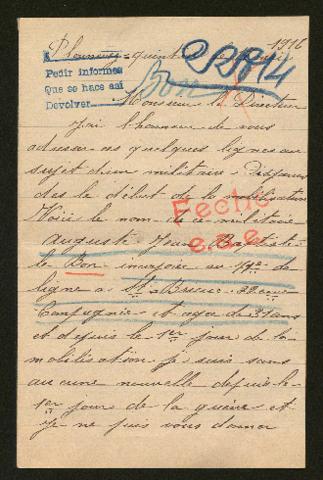 Plounévez-quintin le 1916
Pedir informes
Que se hace así
Devolver
Bon
Monsieur le Directeur
J'ai l'honneur de vous
adresser ces quelques lignes au
sujet d'un militaire disparu
des le début de la mobilisation
Voici le nom de ce militaire
Fecho
Auguste Jean Baptiste
le Bon incorporé au de
ligne a St Brieuc 22eme
Compagnie et agé de 31 ans
et depuis le 1er jour de la
mobilisation je suis sans
aucune nouvelle depuis le
1er jours de la guerre et
je ne puis vous donner